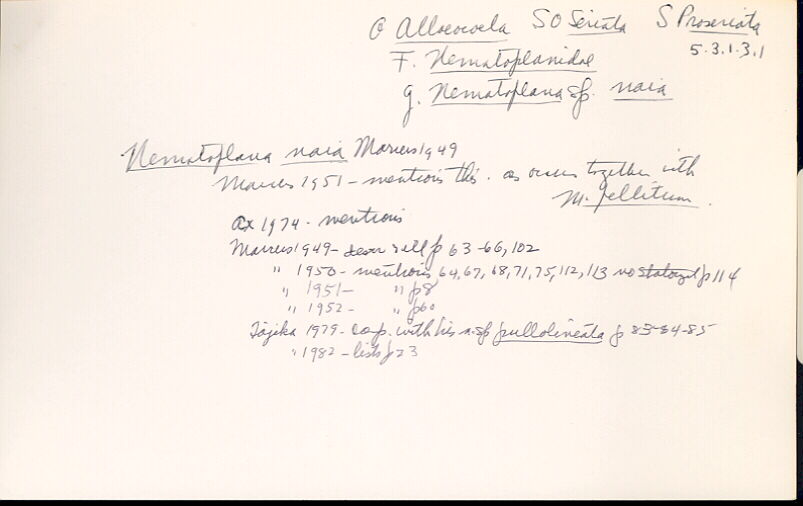 O Alloeocoela SO Seriata S Proseriata
5.3.1.3.1
F. Nematoplanidae
g. Nematoplana sp. naia
Nematoplana naia Marcus 1949
Marcus 1951 - mentions this. as occurs together with
M. pellitum.
Ax 1974 - mentions
Marcus 1949 - descr & ill p 63-66, 102
" 1950 - mentions 64, 67, 68, 71, 75, 112, 113 no statocyst p 114
" 1951 - " p8
" 1952 - " p60
Tajika 1979 - comp. with his n. sp pullolineata p 83-84-85
" 1982 - lists p 23